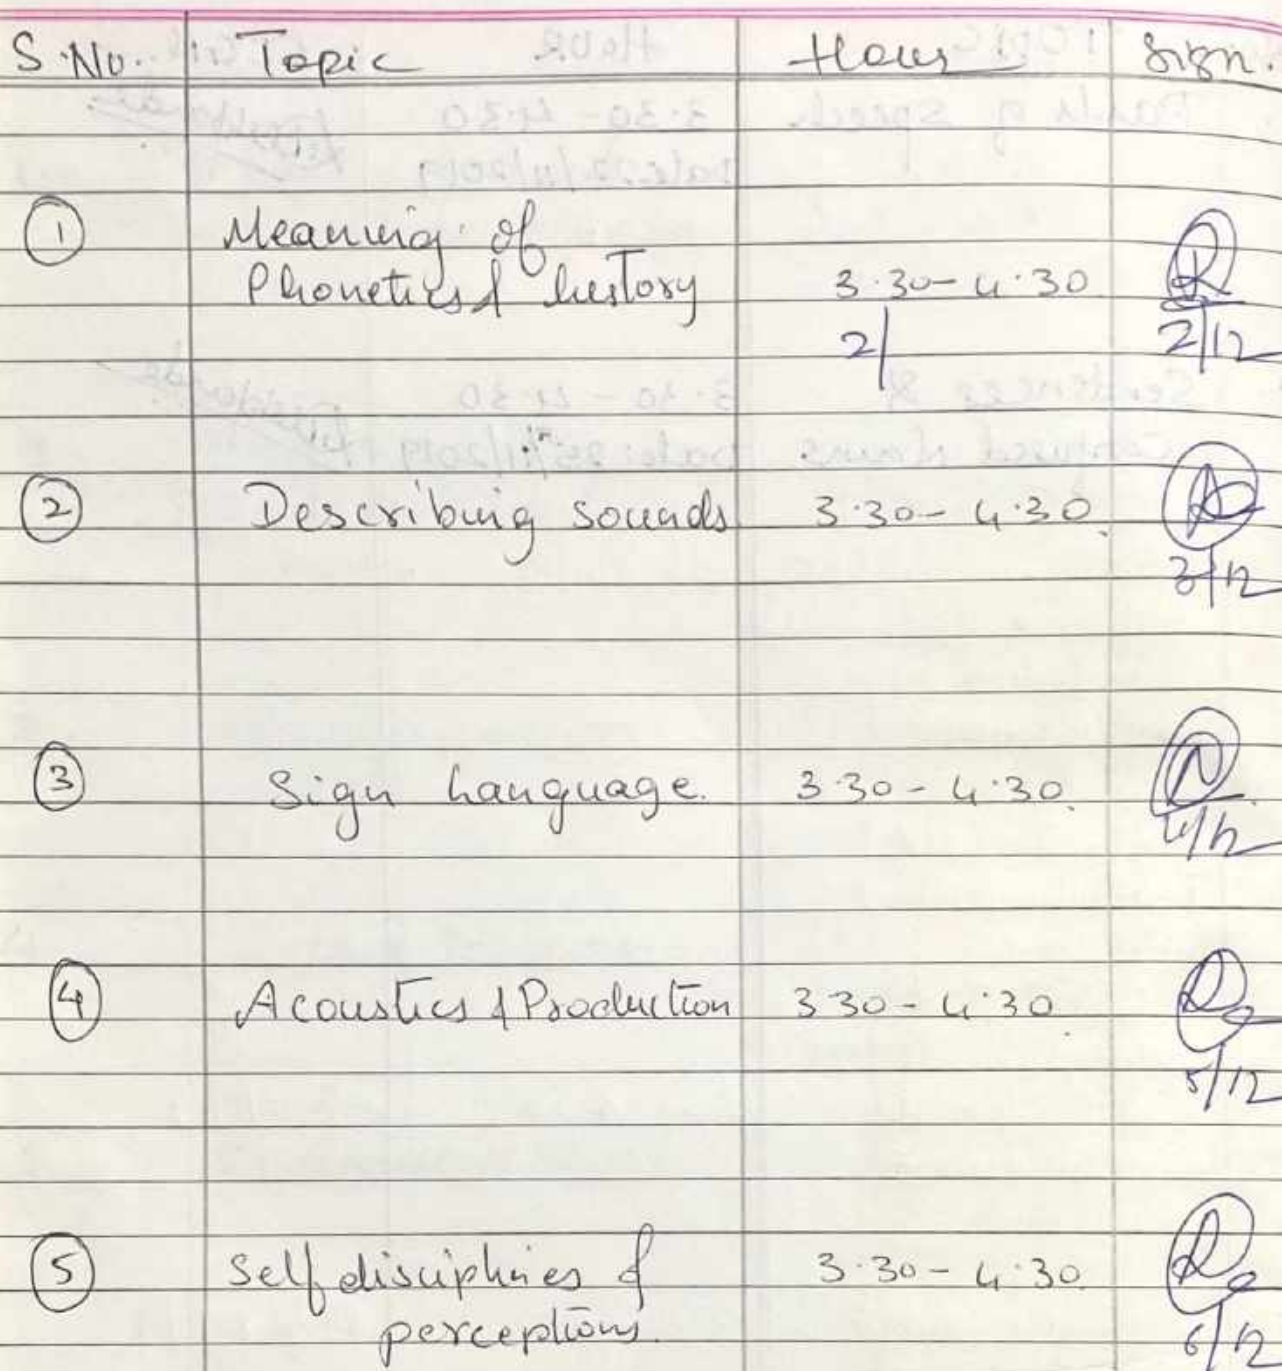 S.No. Topic Hour Sign.
① Meaning of
Phonetics & history 3.30 - 4.30
2/ 2/12
② Describing sounds 3.30 - 4.30
3/12
③ Sign Language. 3.30 - 4.30
4/12
④ Acoustics & Production 3.30 - 4.30
5/12
⑤ Self disciplines & 3.30 - 4.30
perceptions. 6/12